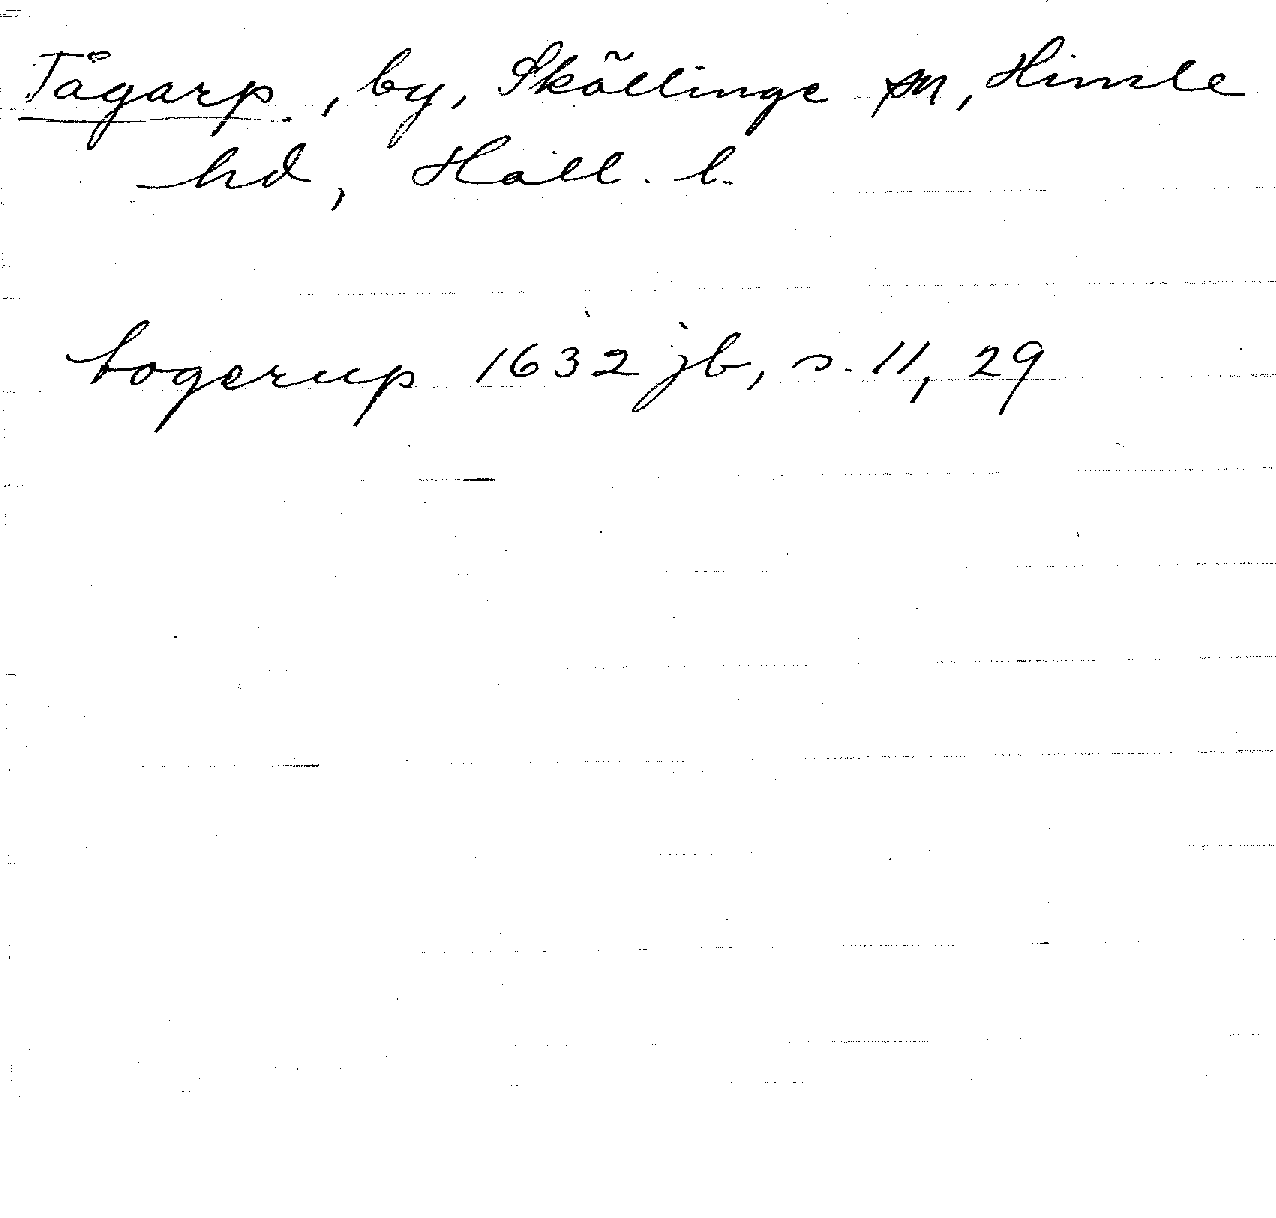 Tågarp, by, Skällinge sn, Himle
hd, Hall. l.
togerup 1632 jb, s. 11, 29